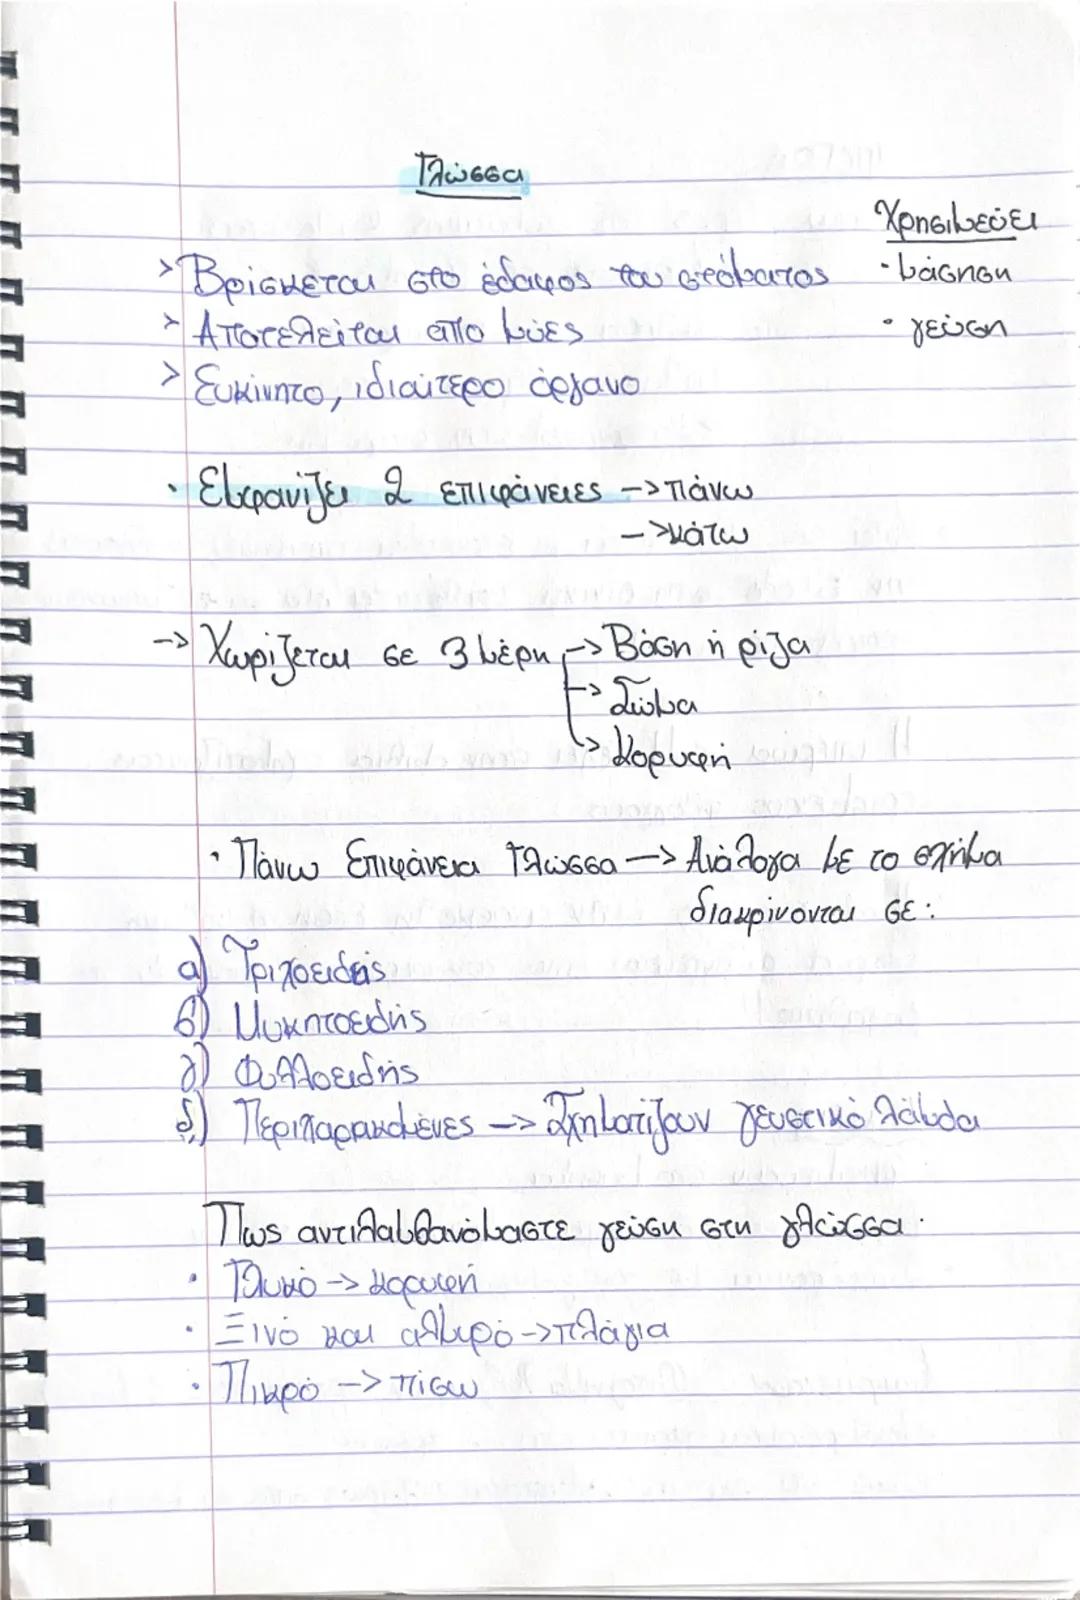 Γλώσσα
Χρησιμεύει
> Βρίσκεται στο έδαφος του στόματος
· μάσηση
> Αποτελείται από μύες
· γεύση
> Ευκίνητο, ιδιαίτερο όργανο
· Εμφανίζει 2 επιφάνειες -> πάνω
-> κάτω
-> Χωρίζεται σε 3 μέρη -> Βάση ή ρίζα
-> Σώμα
-> Κορυφή
· Πάνω Επιφάνεια Γλώσσα -> Ανάλογα με το σχήμα
διακρίνονται σε:
α) Τριχοειδείς
β) Μυκητοειδής
γ) Φυλλοειδής
δ) Περιχαρακωμένες -> Σχηματίζουν γευστικό λάμδα
Πως αντιλαμβανόμαστε γεύση στη γλώσσα.
· Γλυκό -> κορυφή
· Ξινό και αλμυρό -> πλάγια
· Πικρό -> πίσω